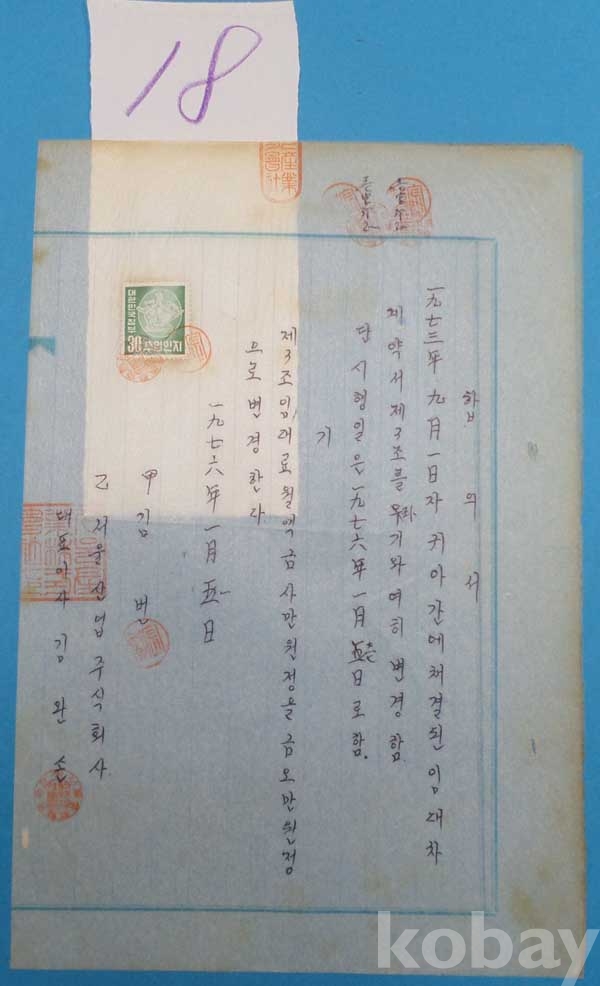 18
합의서
一九七三年 九月 一日자 귀아간에 체결된 임대차
계약서 제3조를 하기와 여히 변경함
단 시행일은 一九七六年 一月 日로 함.
기
제3조 임대료 월액 금 사만원정을 금 오만원정
으로 변경한다
一九七六年 一月 日
甲 김 번
乙 서울산업주식회사
대표이사 김완손
대한민국정부
30 수입인지
kobay